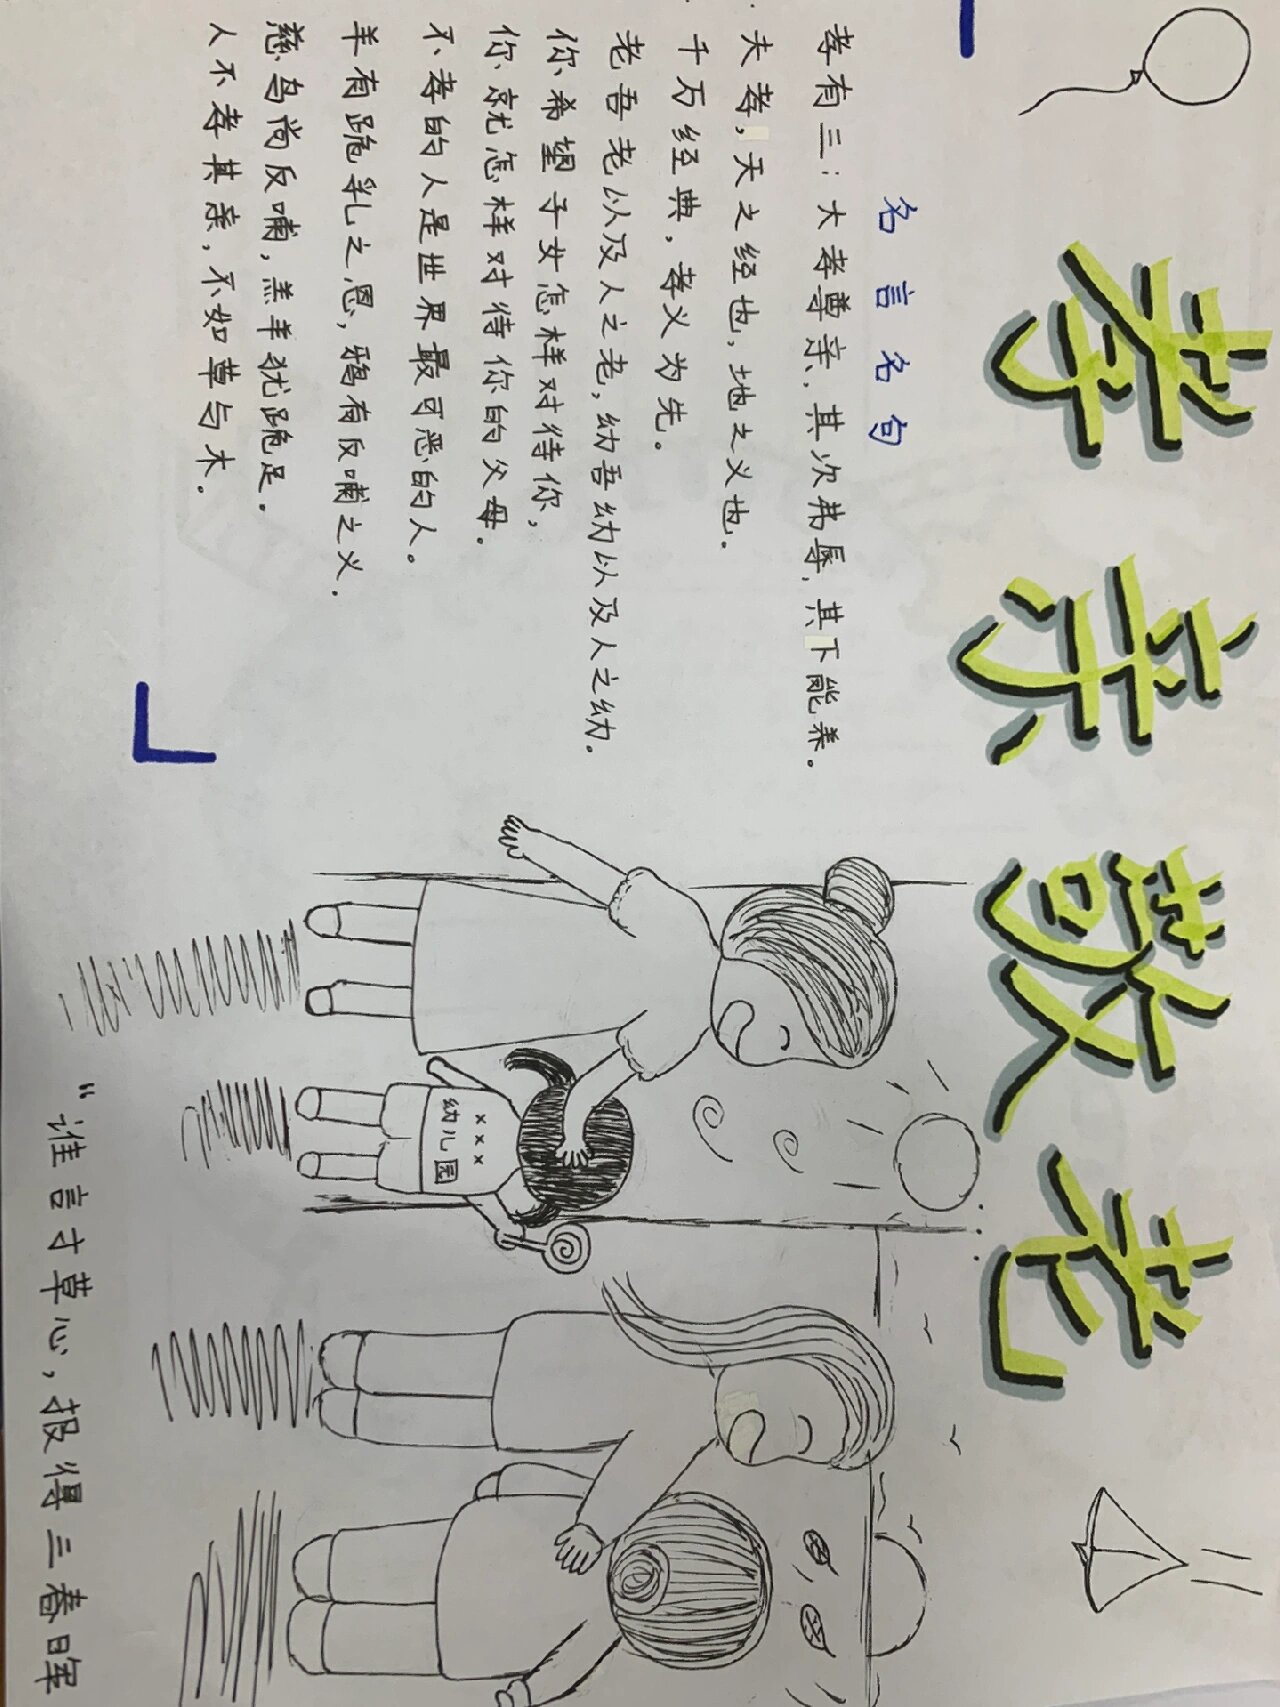 孝亲敬老
名言名句
孝有三:大孝尊亲,其次弗辱,其下能养。
夫孝,天之经也,地之义也。
千万经典,孝义为先。
老吾老以及人之老,幼吾幼以及人之幼。
你希望子女怎样对待你,
你就怎样对待你的父母。
不孝的人是世界最可恶的人。
羊有跪乳之恩,鸦有反哺之义.
慈乌尚反哺,羔羊犹跪足.
人不孝其亲,不如草与木.
xxx
幼儿园
“谁言寸草心,报得三春晖